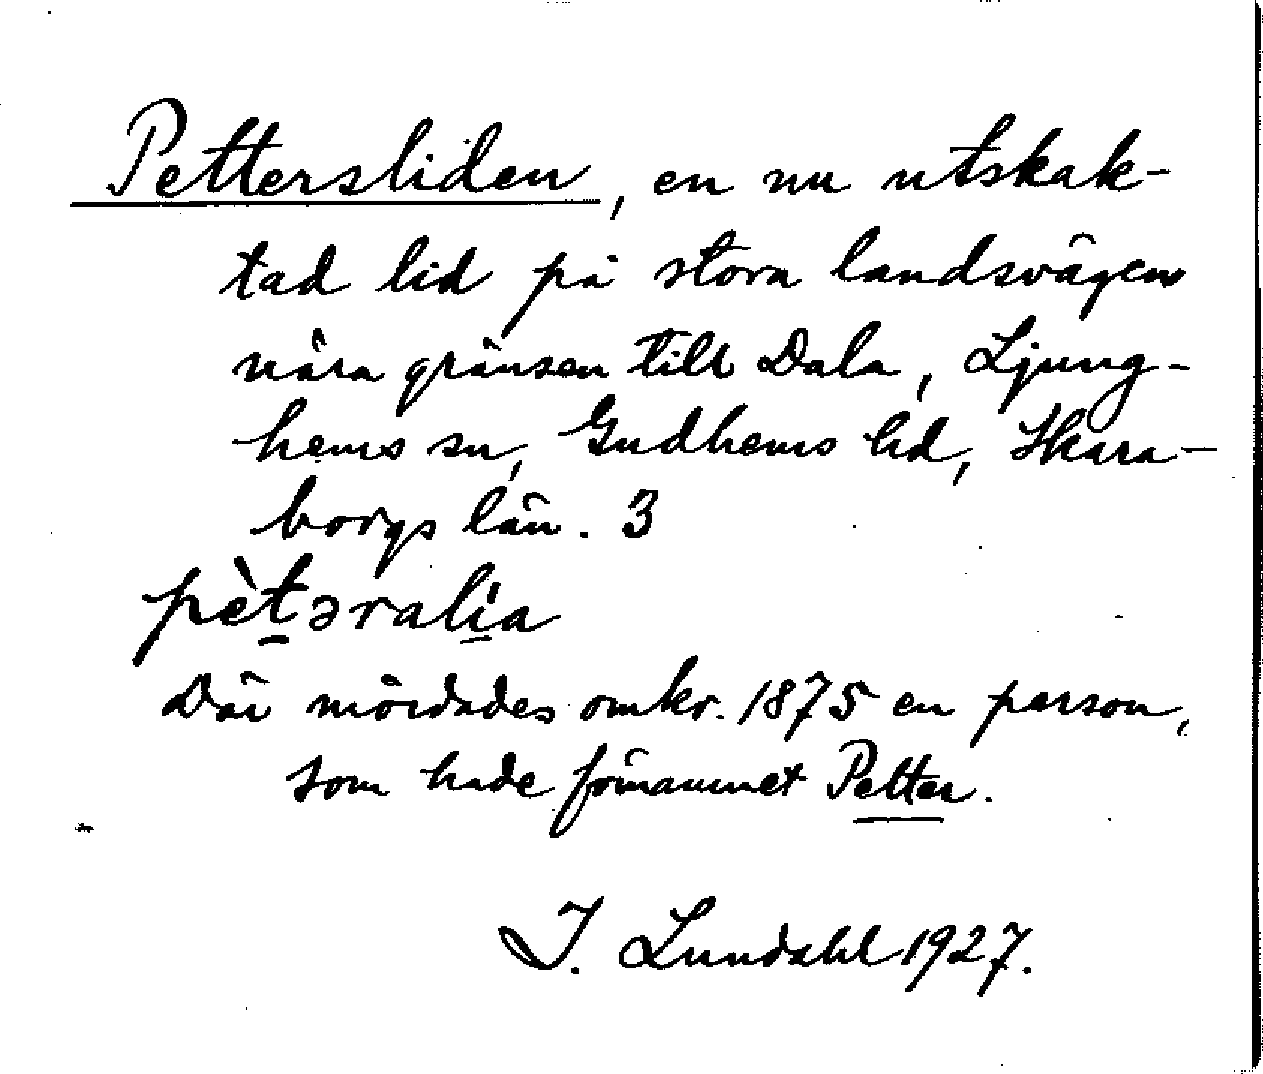 Pettersliden, en nu utskak-
tad lid på stora landsvägen
nära gränsen till Dala, Ljung-
hems sn, Gudhems hd, Skara-
borgs län. 3
pèt̲əralí̲a
Där mördades omkr. 1875 en person,
som hade förnamnet Petter.
I. Lundahl 1927.